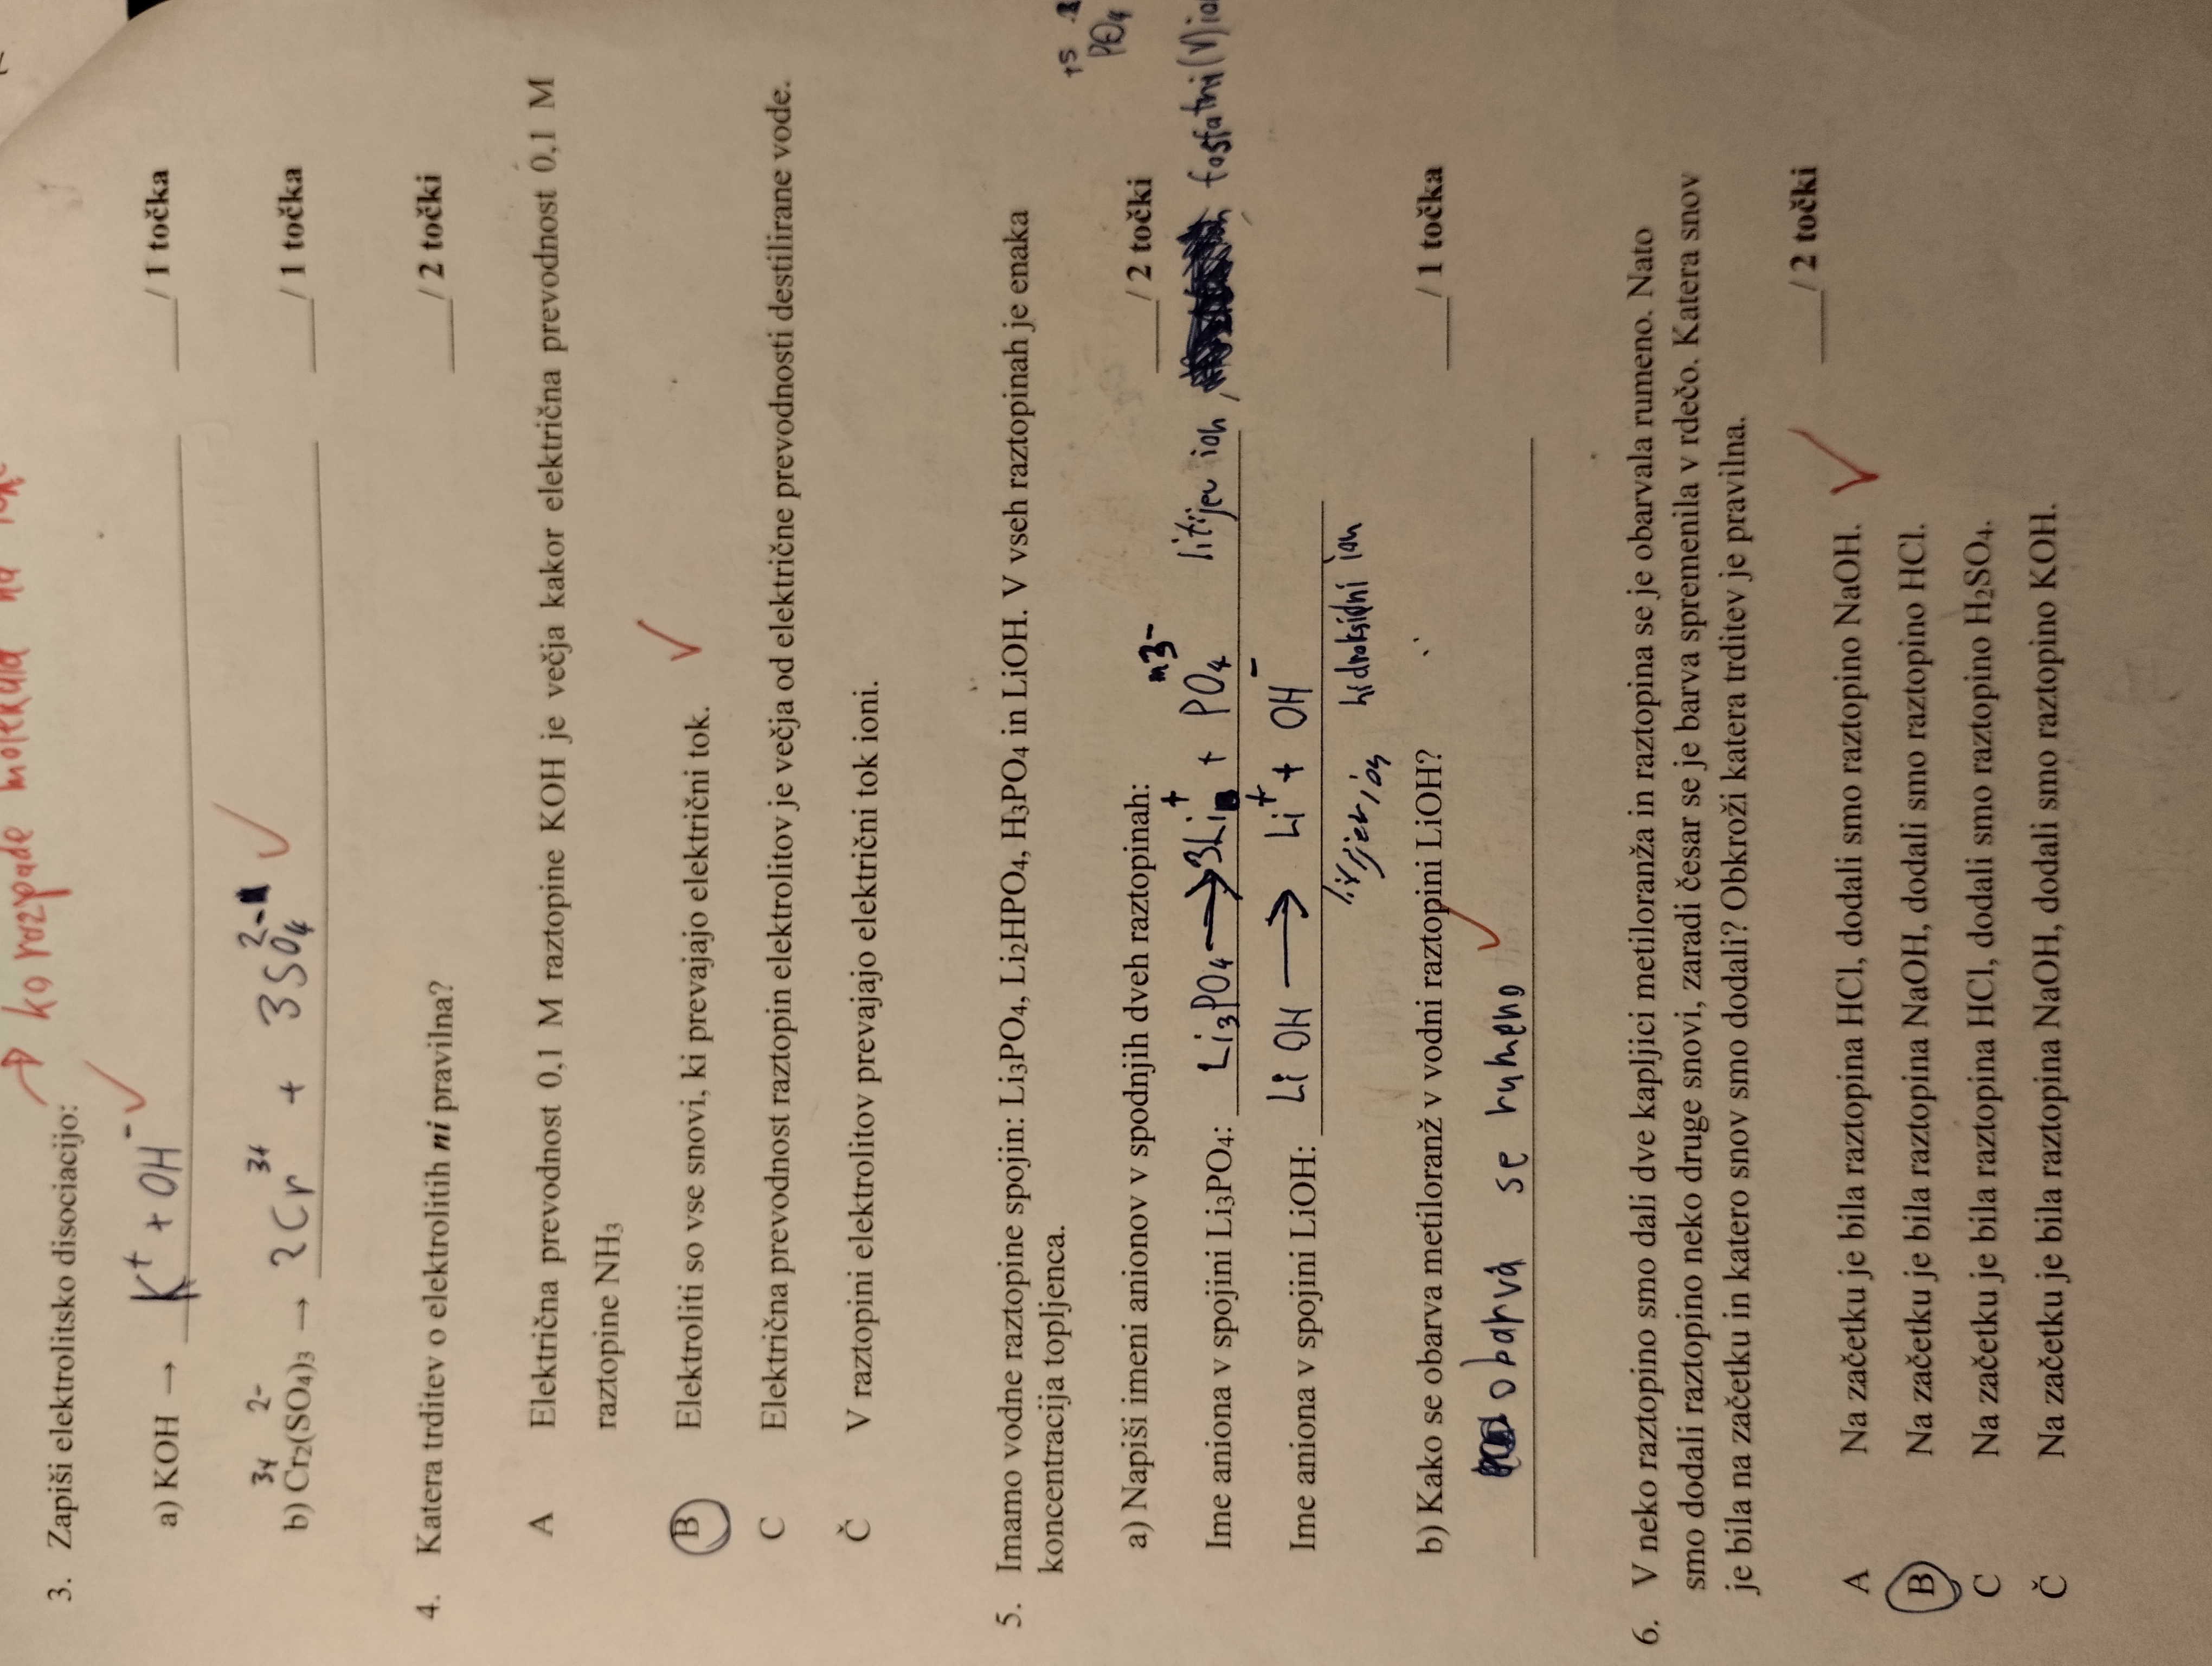 → ko razpade molekula na ione
3. Zapiši elektrolitsko disociacijo:
a) KOH → K⁺ + OH⁻ ✓ ____/ 1 točka
3+ 2-
b) Cr₂(SO₄)₃ → 2Cr³⁺ + 3SO₄²⁻ ✓ ____/ 1 točka
4. Katera trditev o elektrolitih ni pravilna? ____/ 2 točki
A Električna prevodnost 0,1 M raztopine KOH je večja kakor električna prevodnost 0,1 M
raztopine NH₃
B Elektroliti so vse snovi, ki prevajajo električni tok. ✓
C Električna prevodnost raztopin elektrolitov je večja od električne prevodnosti destilirane vode.
Č V raztopini elektrolitov prevajajo električni tok ioni.
5. Imamo vodne raztopine spojin: Li₃PO₄, Li₂HPO₄, H₃PO₄ in LiOH. V vseh raztopinah je enaka
koncentracija topljenca.
+5
PO₄
a) Napiši imeni anionov v spodnjih dveh raztopinah: ____/ 2 točki
Ime aniona v spojini Li₃PO₄: Li₃PO₄ → 3Li⁺ + PO₄³⁻ litijev ion, fosfatni(V)io
Ime aniona v spojini LiOH: LiOH → Li⁺ + OH⁻
litijev ion hidroksidni ion
b) Kako se obarva metiloranž v vodni raztopini LiOH? ____/ 1 točka
obarva se rumeno ✓
6. V neko raztopino smo dali dve kapljici metiloranža in raztopina se je obarvala rumeno. Nato
smo dodali raztopino neko druge snovi, zaradi česar se je barva spremenila v rdečo. Katera snov
je bila na začetku in katero snov smo dodali? Obkroži katera trditev je pravilna.
____/ 2 točki
A Na začetku je bila raztopina HCl, dodali smo raztopino NaOH. ✓
B Na začetku je bila raztopina NaOH, dodali smo raztopino HCl.
C Na začetku je bila raztopina HCl, dodali smo raztopino H₂SO₄.
Č Na začetku je bila raztopina NaOH, dodali smo raztopino KOH.